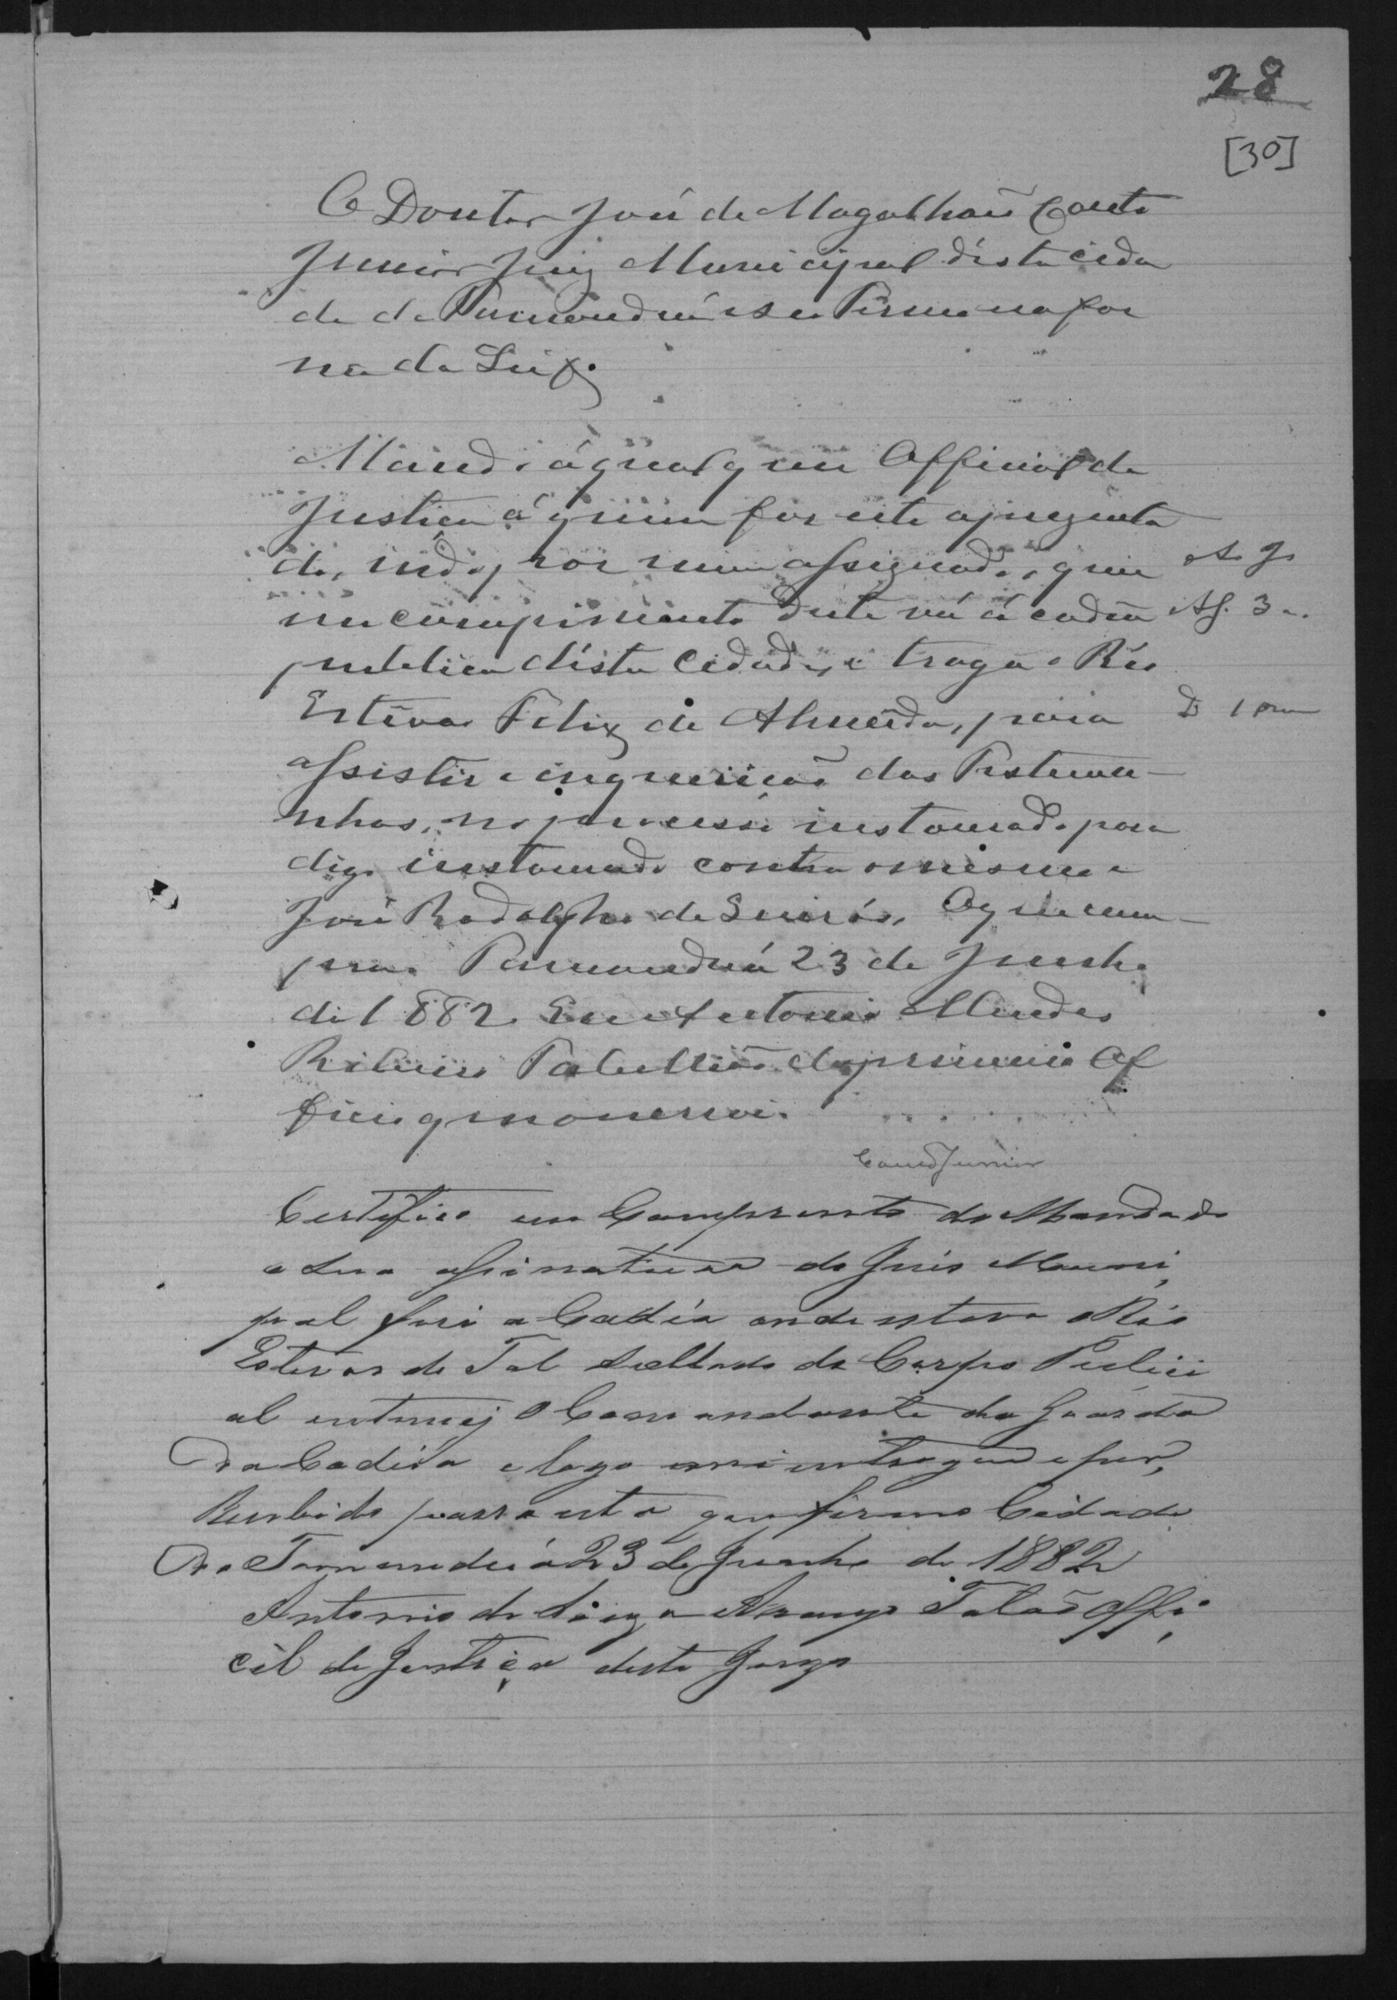 28
[30]
O Doutor José de Magalhães Couto
Junior Juiz Municipal désta cida
de de Tamanduá e seu Termo na for
ma da Lei &.
Mando á qualquer Official de
Justiça á quem for este aprezenta
do, indo por mim assignado, que
em cumprimento deste vá á cadêa
publica désta Cidade, e traga o Réo
Estevão Felix de Almeida, para
assistir a inquirição das Testemu-
nhas, no processo instaurado para
digo instaurado contra o mesmo e
José Rodolpho de 
O que cum-
pra. Tamanduá 23 de Junho
de 1882. Eu Antonio Mendes
Ribeiro Tabellião do primeiro Of
ficio que o escrevi.
Couto Junior
Certifico em Comprimento do Mandado
e sua assinatura do Juis Muni
pal fui a Cadêia onde estava o Réo
Estevão de Tal Solldado do Corpo Polici
al intimej o Comandante da Guarda
da Cadêia e logo me entregou e fica
Recebido passo esta que firmo Cidade
de Tamanduá 23 de Junho de 1882
Antonio de Araujo Falcão Offi
cil de Justiça deste Juizo